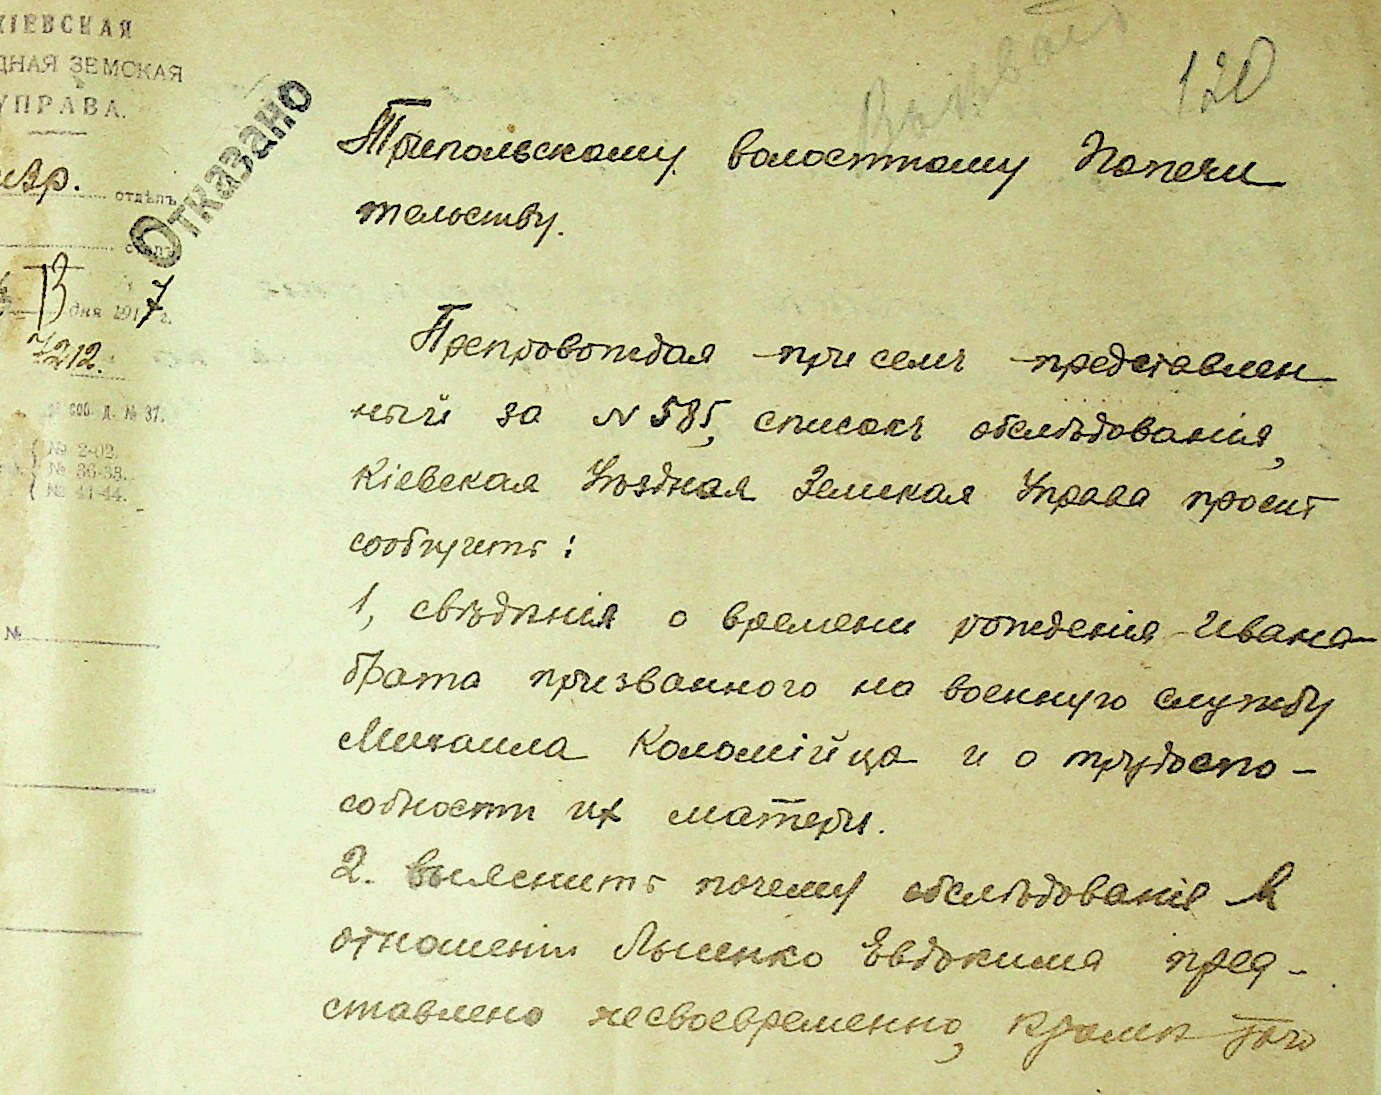 КІЕВСКАЯ
ДНАЯ ЗЕМСКАЯ
УПРАВА.
отдѣлъ
Отказано
дня 1917 г.
7212.
№ 2-02.
№ 36-38.
№ 41-44.
№
120
Трипольскому волостному Попечи
тельству.
Препровождая при семъ представлен
ный за № 585, списокъ обслѣдованія,
Кіевская Уѣздная Земская Управа просит
сообщить:
1, свѣдѣнія о времени рожденія Ивана
брата призванного на военную службу
Михаила Коломійца и о трудоспо-
собности их матери.
2. выяснить почему обслѣдованіе в
отношеніи Лысенко Евдокима пред-
ставлено несвоевременно, кромѣ того